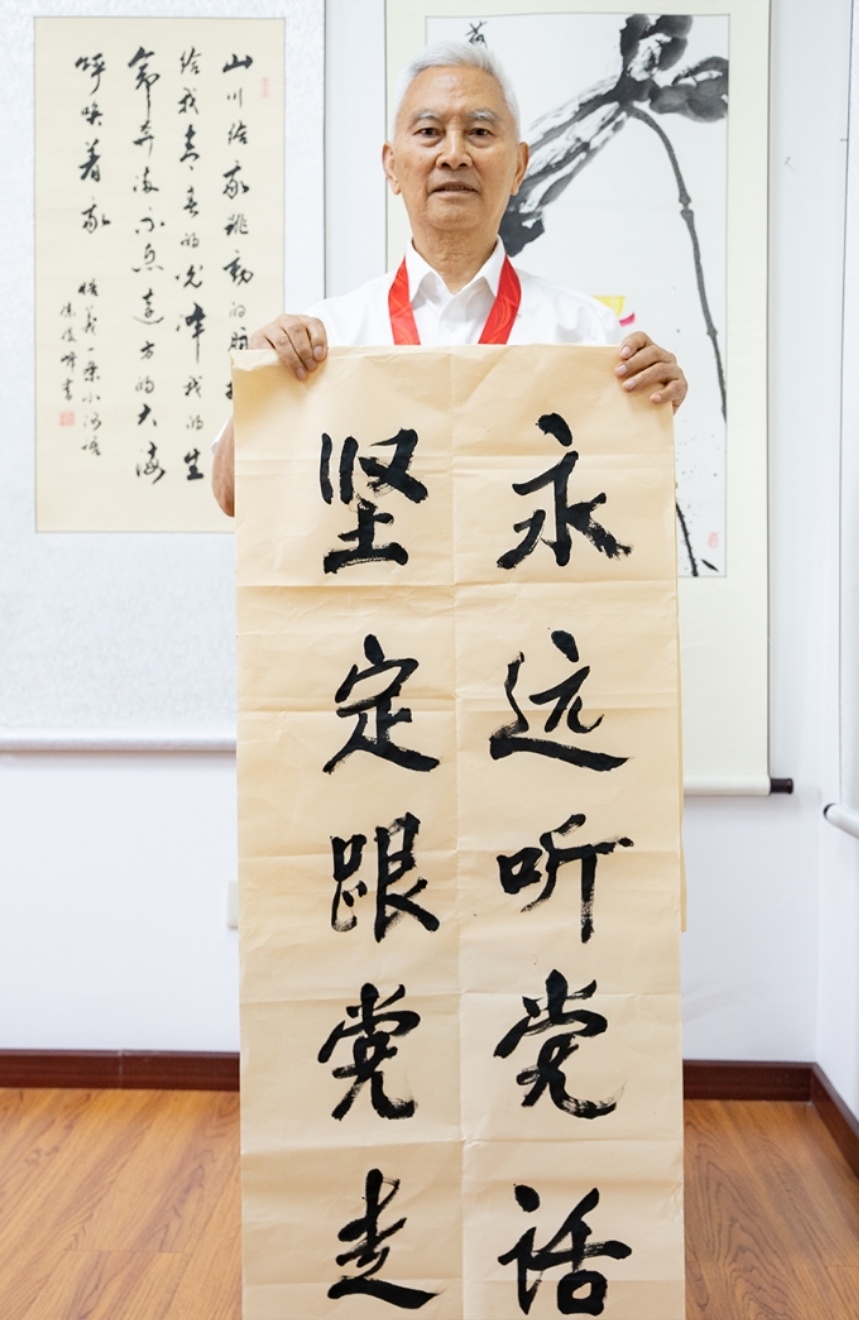 永远听党话
坚定跟党走
山川给我跳动的脉
给我青春的光泽我的生
命奔流不息远方的大海
呼唤着我